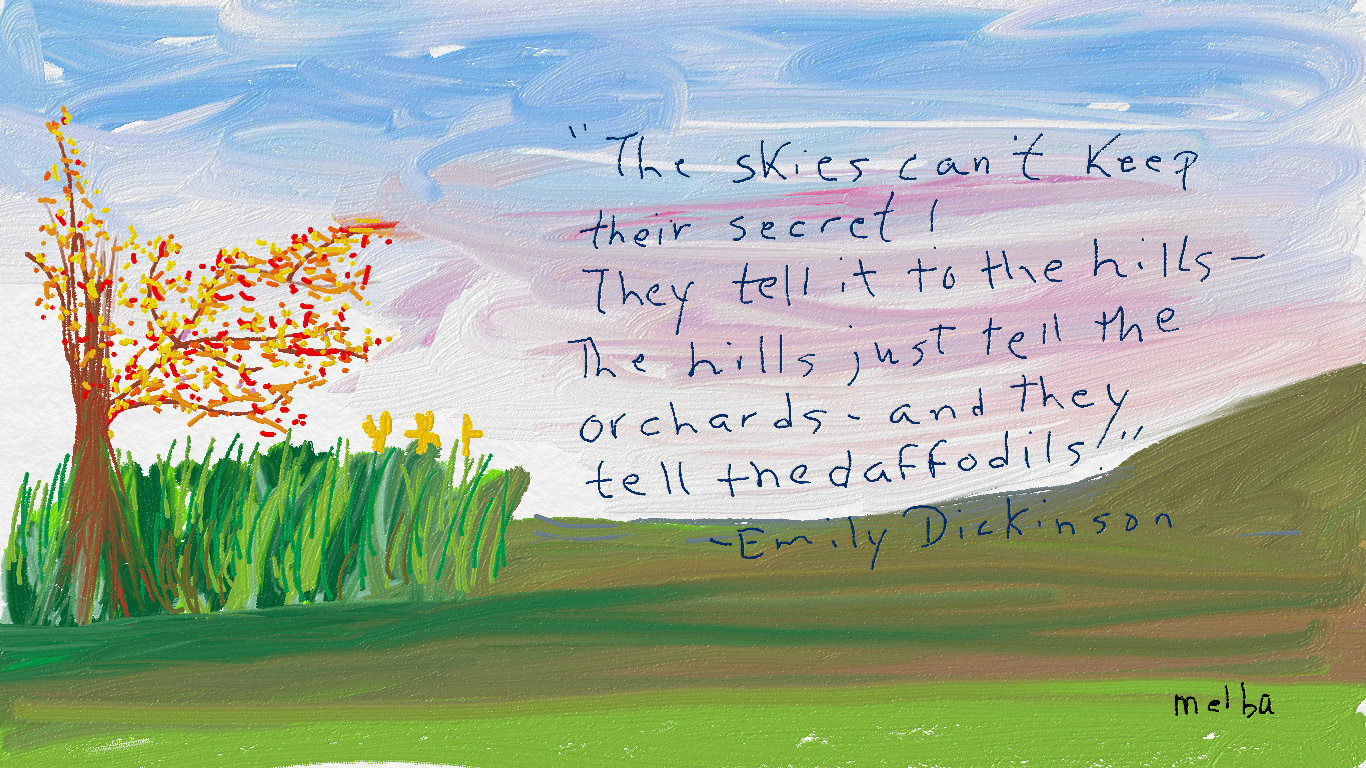 "The skies can't keep
their secret!
They tell it to the hills –
The hills just tell the
orchards - and they
tell the daffodils!"
-Emily Dickinson
melba